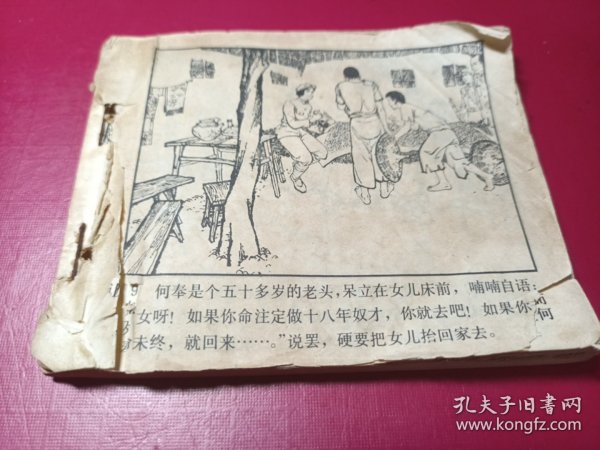 何奉是个五十多岁的老头，呆立在女儿床前，喃喃自语：
女呀！如果你命注定做十八年奴才，你就去吧！如果你
未终，就回来……。”说罢，硬要把女儿抬回家去。
何
孔夫子旧书网
www.kongfz.com